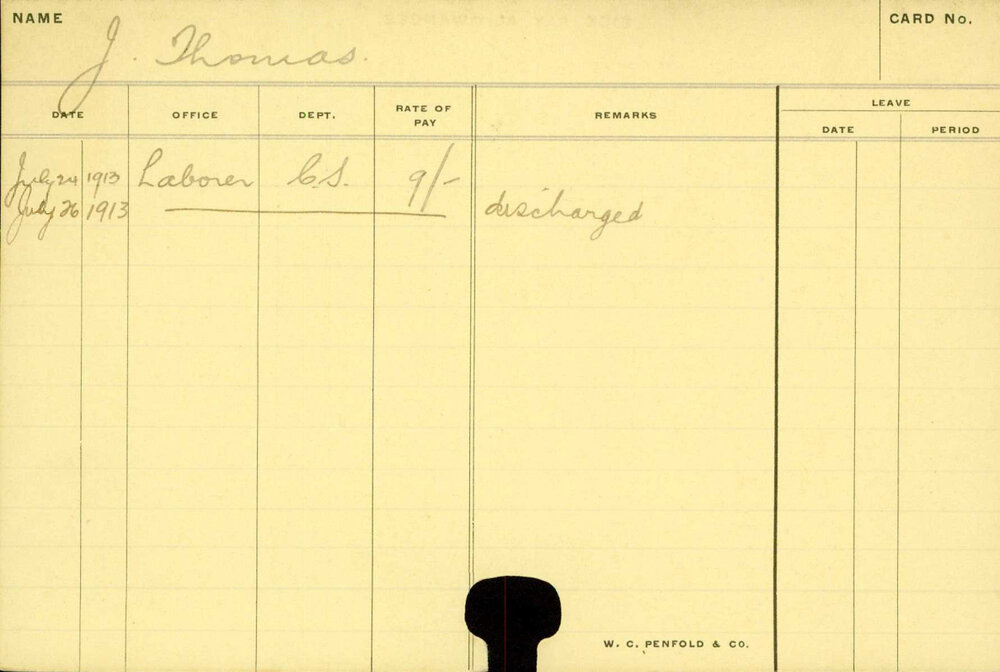 NAME
J. Thomas.
CARD No.
DATE OFFICE DEPT. RATE OF PAY REMARKS LEAVE
DATE PERIOD
July 24 1913 Laborer C.S. 9/-
July 26 1913 discharged
W. C. PENFOLD & CO.